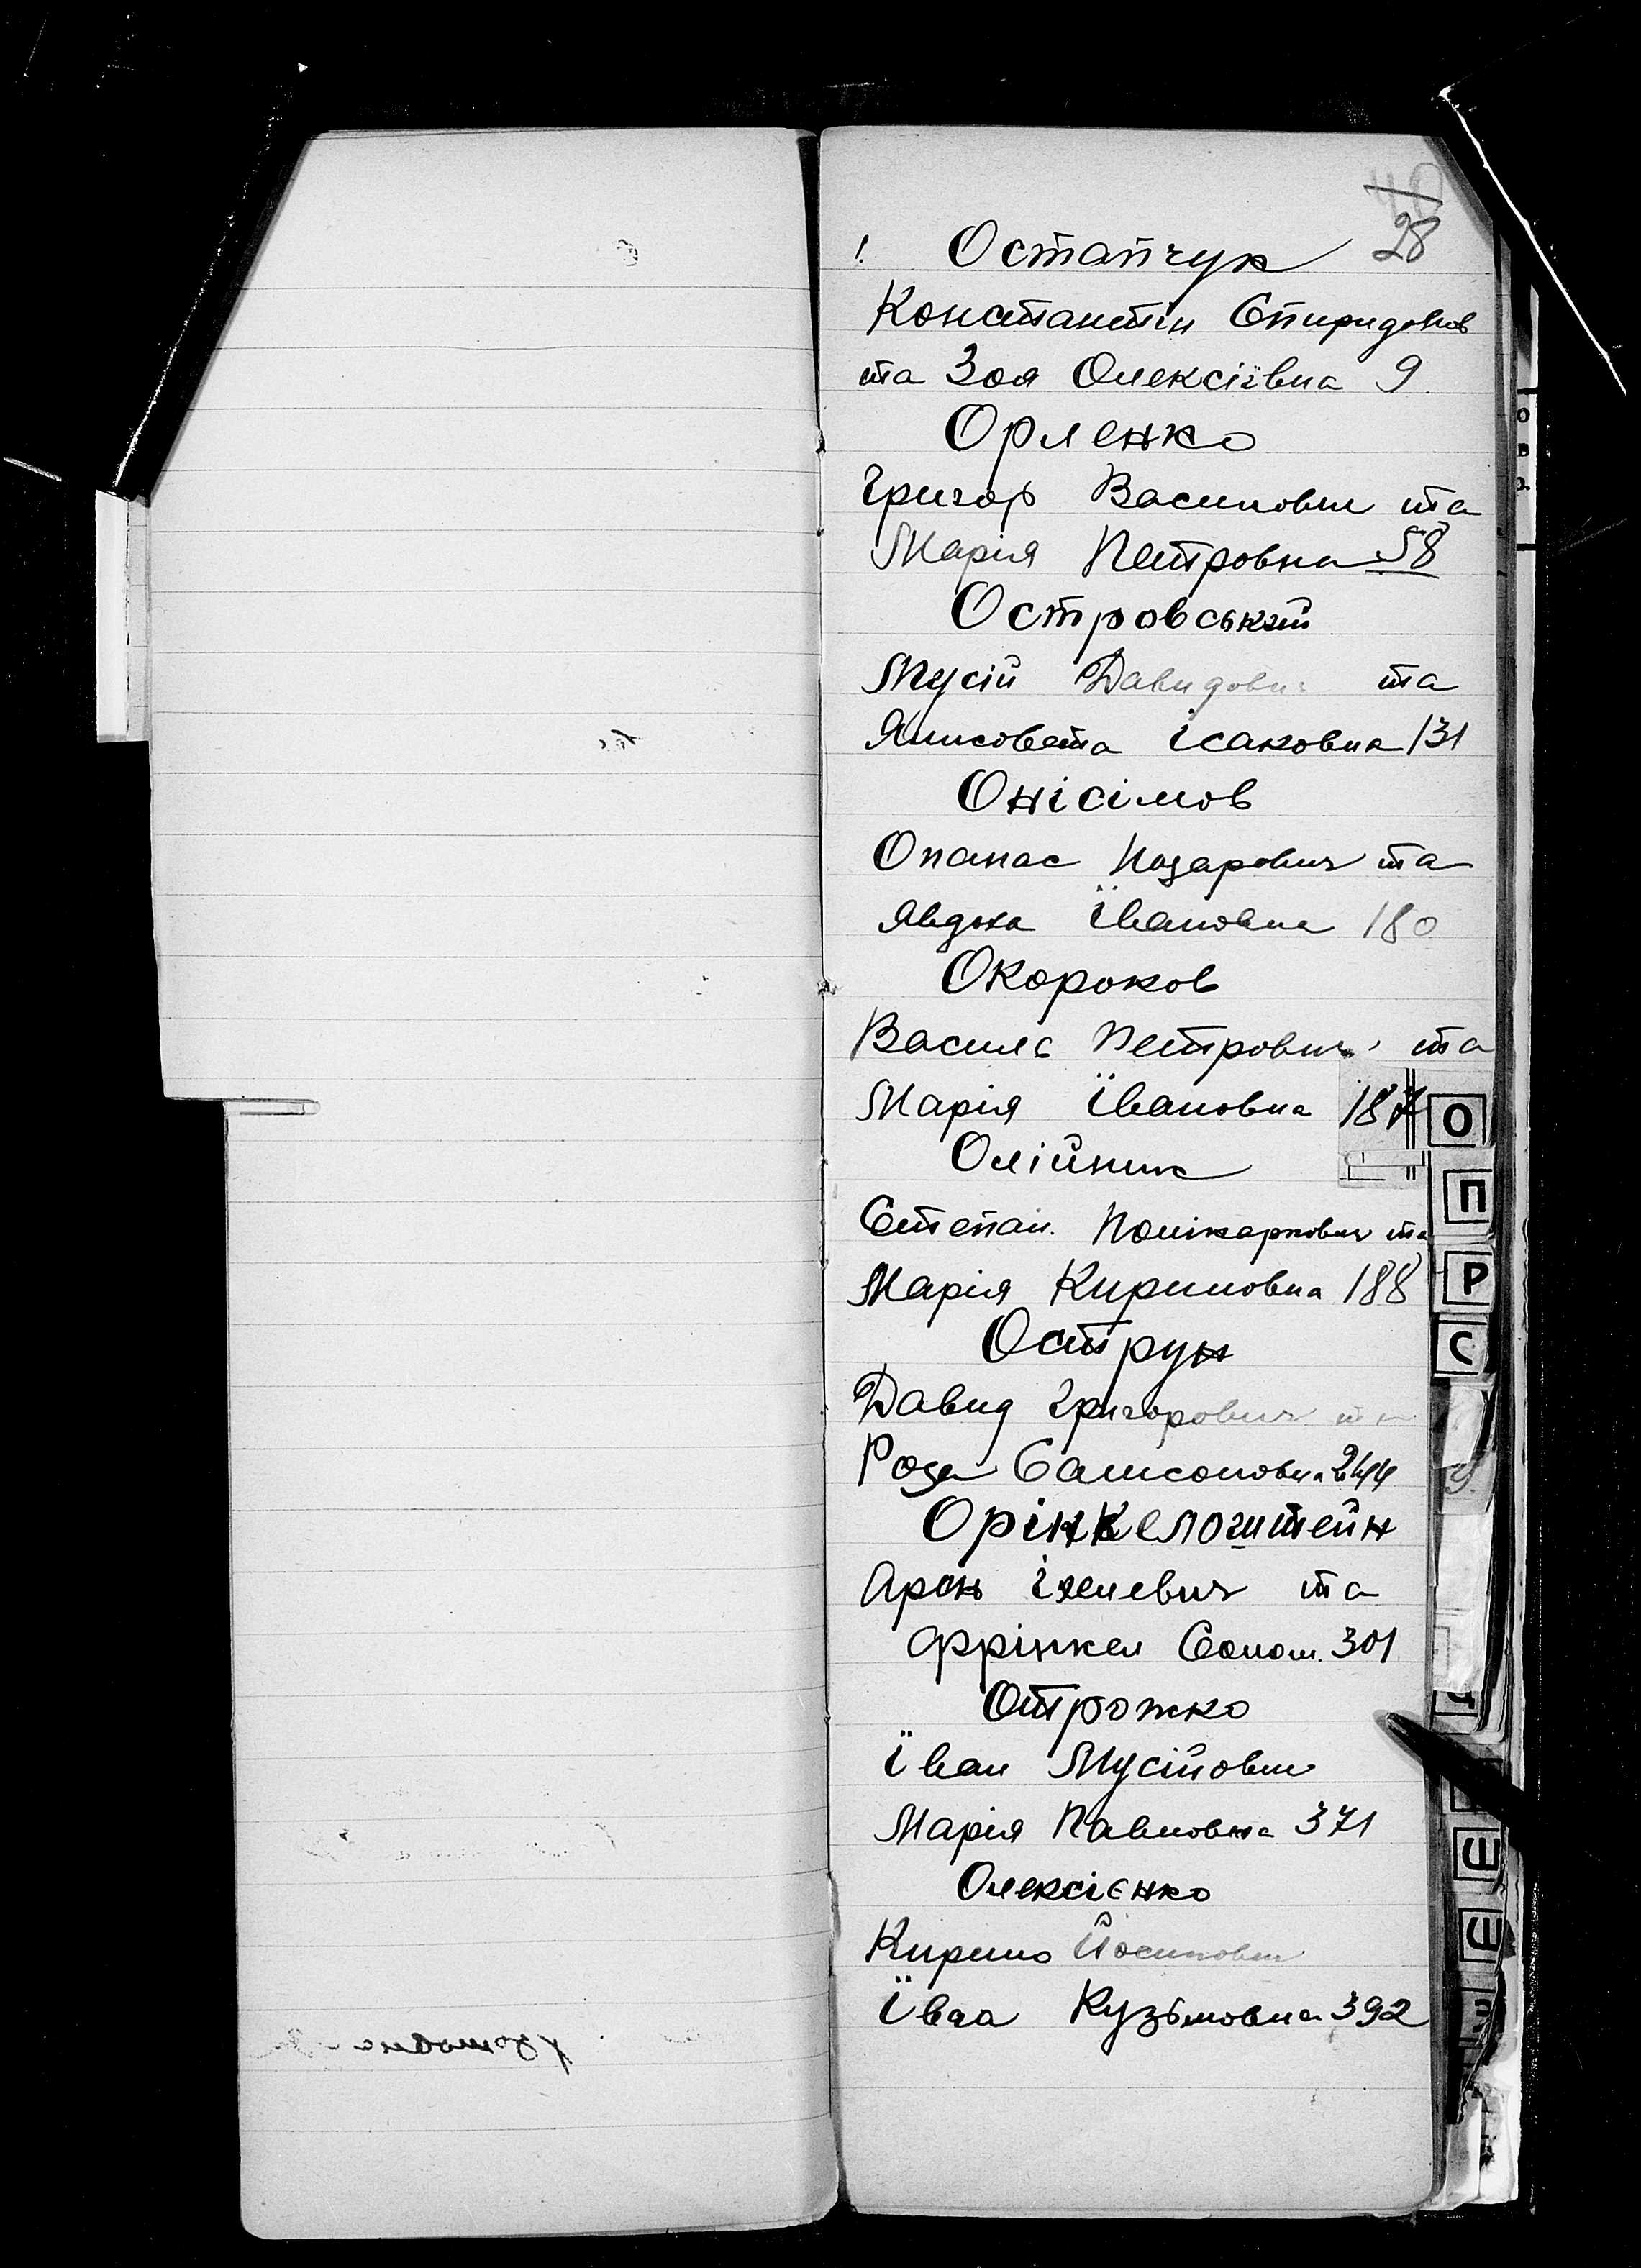 28
1. Остапчук
Константін Спиридонов
та Зоя Олексіївна 9
Орленко
Григор Васильович та
Марія Петровна 58
Островський
Мусій Давидович та
Ялисовета Ісаковна 131
Онісімов
Опанас Назарович та
Явдоха Івановна 180
Окороков
Василь Петрович та
Марія Івановна 187
Олійник
Степан Полікарпович та
Марія Кириловна 188
Острун
Давид Григорович та
Роза Самсоновна 244
Орінкелогштейн
Арон та
Фрінкел Солом. 301
Отрожко
Іван Мусійович
Марія Павловна 371
Олексієнко
Кирило Йосипович
Івга Кузьмовна 392
О
П
Р
С